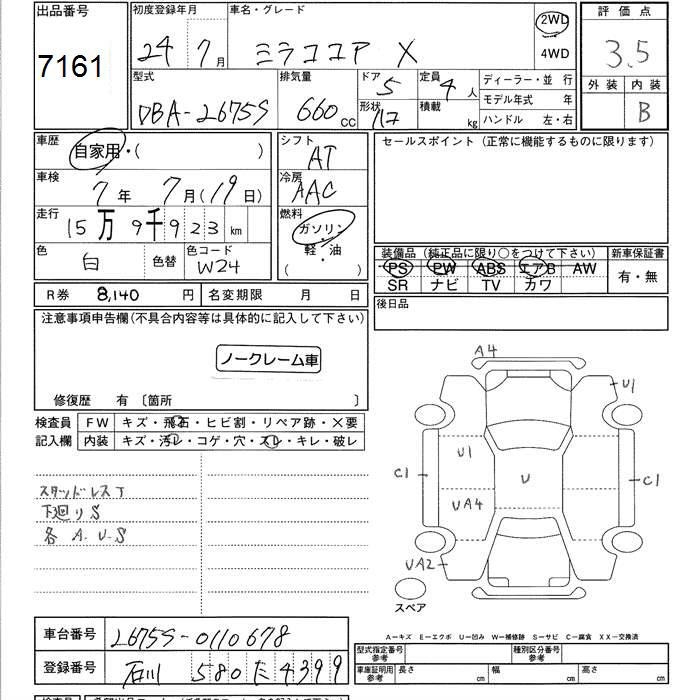 出品番号 初度登録年月 車名・グレード 評価点
7161 24年 7月 ミラココア X 2WD 4WD 3.5
型式 排気量 ドア 定員 ディーラー・並 行 外装 内装
DBA-L675S 660cc 5 4人 モデル年式 年 B
形状 積載 kg ハンドル 左・右
車歴 シフト セールスポイント(正常に機能するものに限ります)
自家用・( ) AT
車検 冷房
7年 7月(19日) AAC
走行 燃料
15万9千923km ガソリン
色 色コード 軽・油
白 色替 W24 ( )
装備品(純正品に限り○をつけて下さい) 新車保証書
PS PW ABS エアB AW 有・無
SR ナビ TV カワ
R券 8,140円 名変期限 月 日 後日品
注意事項申告欄(不具合内容等は具体的に記入して下さい)
ノークレーム車
修復歴 有〔箇所 〕
検査員 FW キズ・飛石・ヒビ割・リペア跡・×要
記入欄 内装 キズ・汚レ・コゲ・穴・スレ・キレ・破レ
A4
U1
U1
C1 U C1
UA4
UA2
スペア
スタッドレスT
下廻りS
各 A.U.S
車台番号 L675S-0110678
登録番号 石川 580 た 4399
A-キズ E-エクボ U-凹み W-補修跡 S-サビ C-腐食 XX-交換済
型式指定番号 参考 種別区分番号 参考
車庫証明用 参考 長さ cm 幅 cm 高さ cm